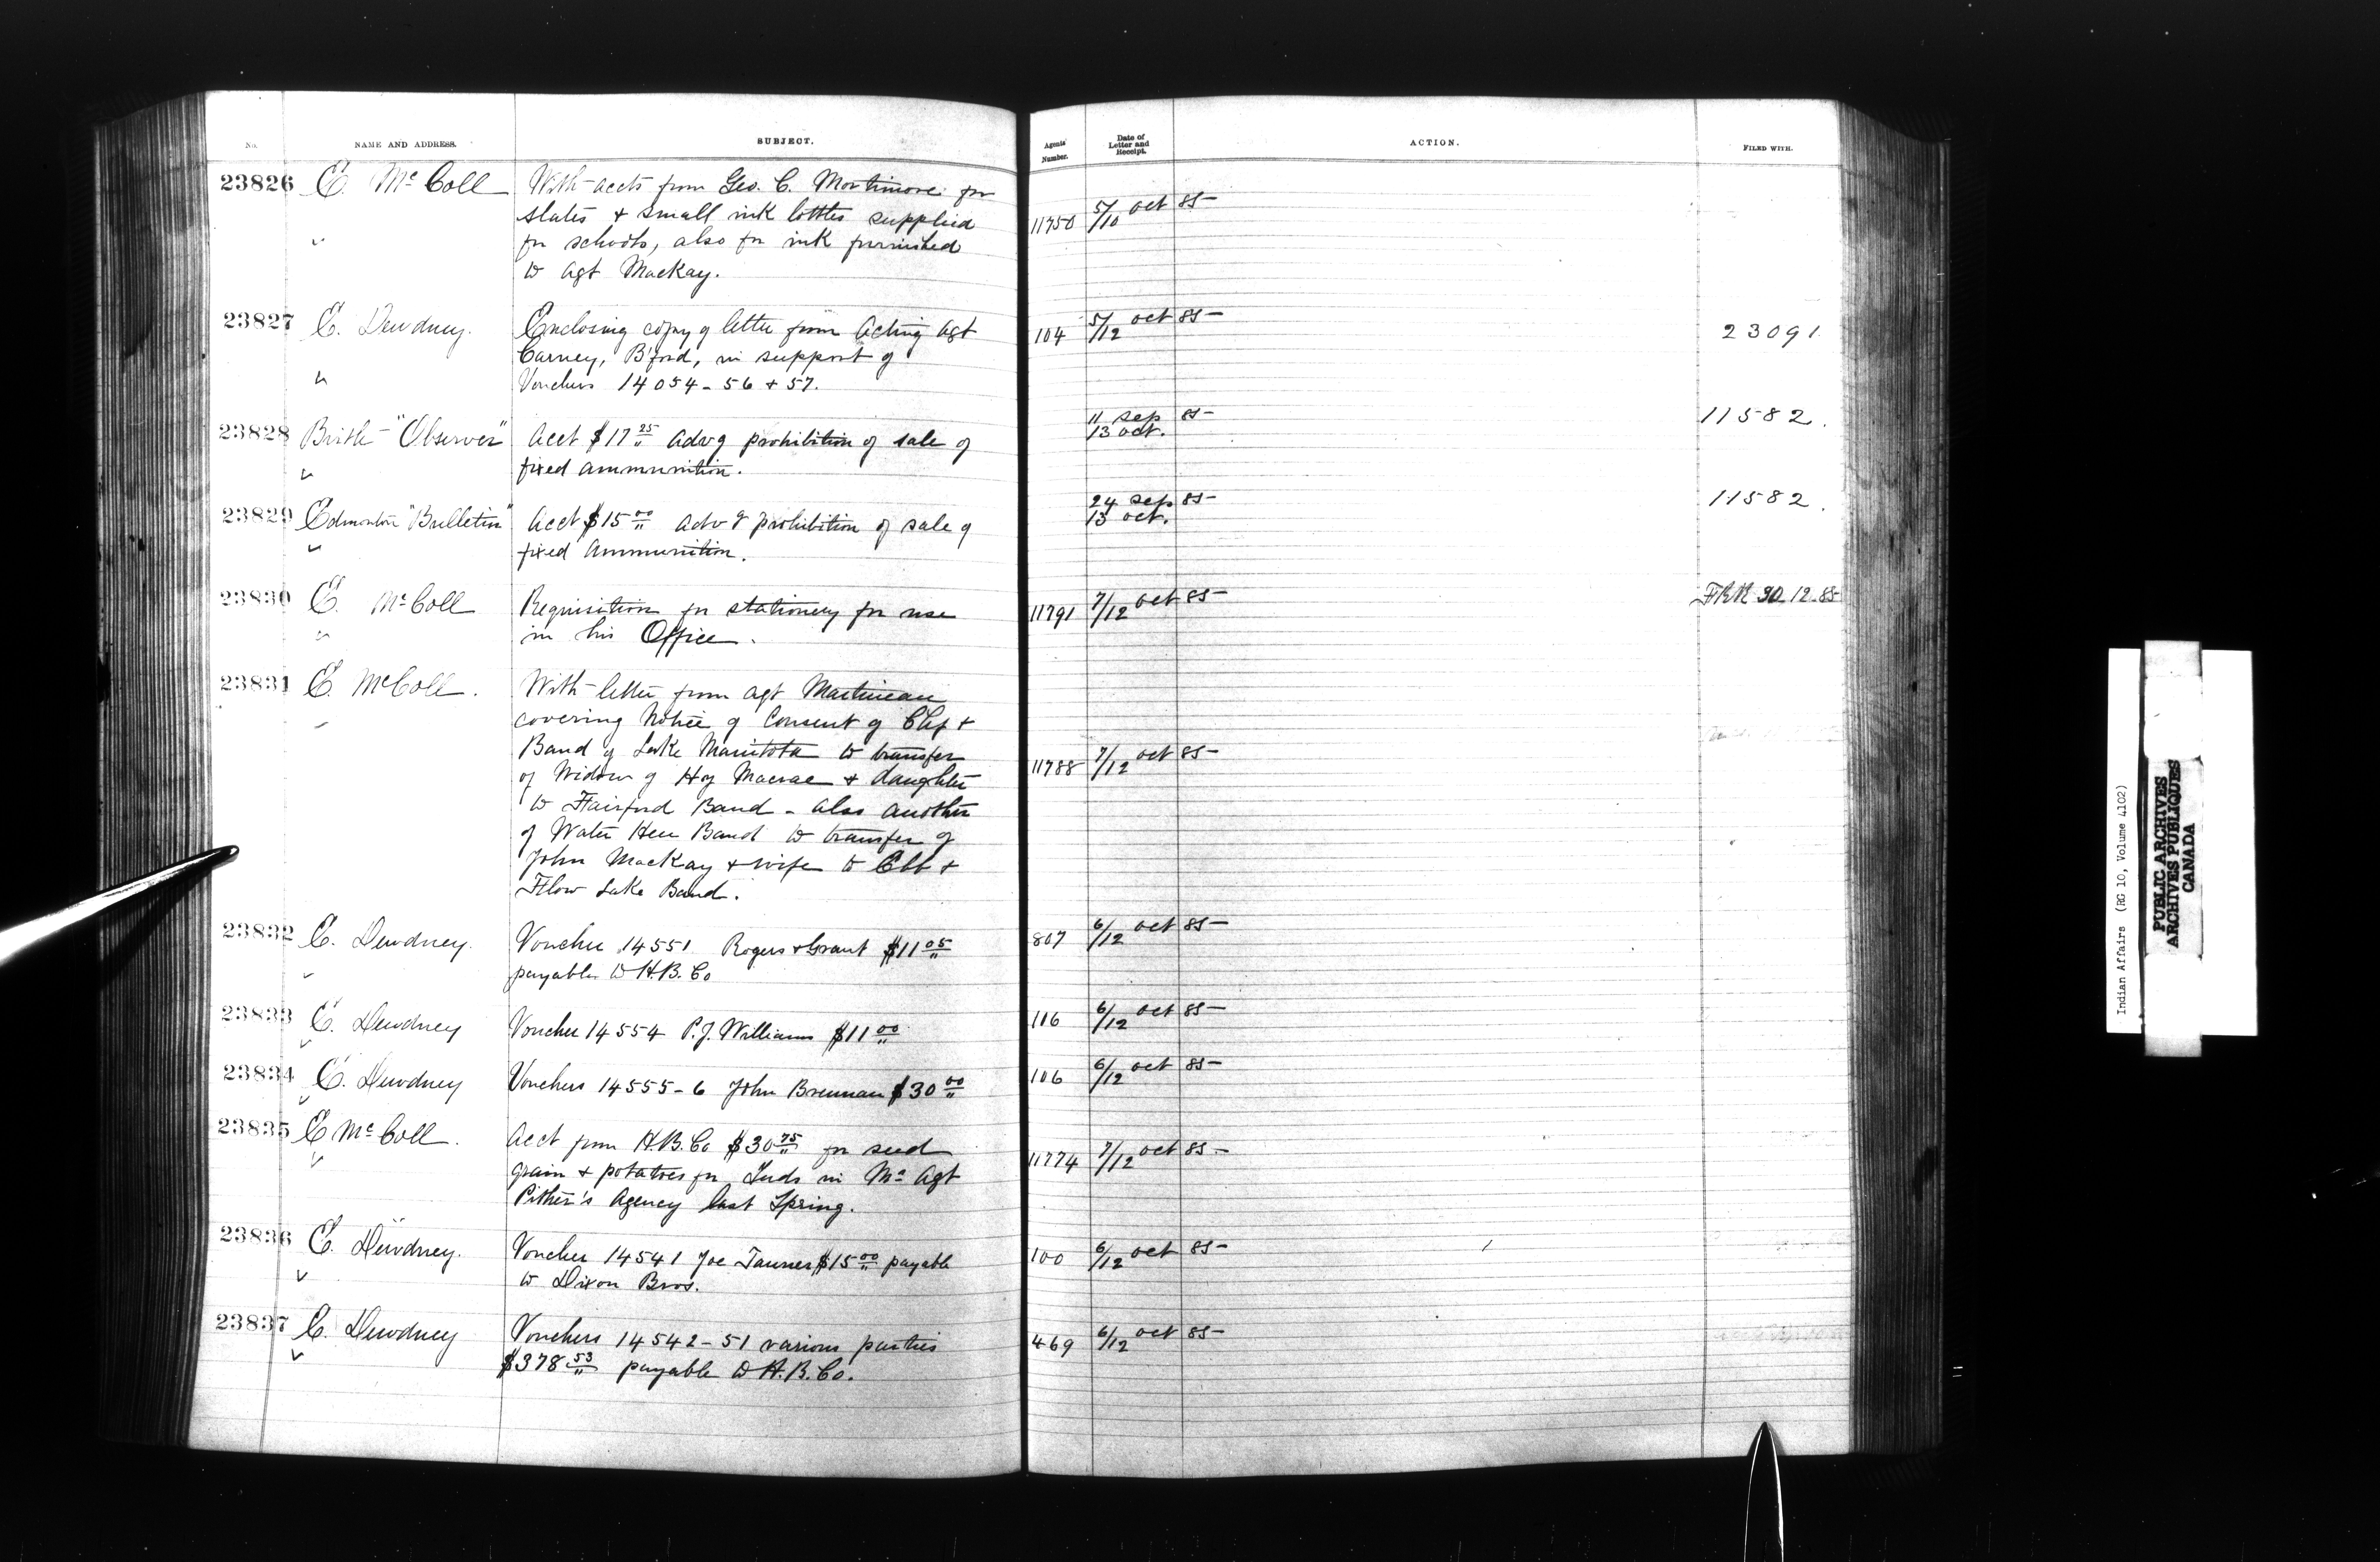 No. NAME AND ADDRESS. SUBJECT. Agents' Number. Date of Letter and Receipt. ACTION. FILED WITH.
23826 E. McColl With accts from Geo. C. Mortimore for
slates & small ink bottles supplied 11750 5/10 Oct 85
" for schools, also for ink furnished
to Agt Mackay.
23827 E. Dewdney. Enclosing copy of letter from Acting Agt 104 5/12 Oct 85 23091
Carney, B'ford, in support of
" Vouchers 14054-56 & 57.
23828 Birtle "Observer" Acct $17 25 advg prohibition of sale of 11 Sep 85 13 Oct. 11582.
fixed ammunition.
23829 Edmonton "Bulletin" Acct $15 00 advg prohibition of sale of 24 Sep 85 13 Oct. 11582.
fixed Ammunition.
23830 E. McColl Requisition for stationery for use 11791 7/12 Oct 85 30.12.85
" in his Office.
23831 E. McColl. With letter from Agt Martineau
covering Notice of Consent of Chf &
Band of Lake Manitoba to transfer
of Widow of Hy Macrae & daughter 11788 7/12 Oct 85
to Fairford Band - also another
of Water Hen Band to transfer of
John Mackay & wife to Ebb &
Flow Lake Band.
23832 E. Dewdney. Voucher 14551 Rogers & Grant $11 05 807 6/12 Oct 85
payable to H.B. Co
23833 E. Dewdney Voucher 14554 P.J. Williams $11 00 116 6/12 Oct 85
23834 E. Dewdney Vouchers 14555-6 John Brennan $30 00 106 6/12 Oct 85
23835 E McColl. Acct from H.B. Co $30 75 for seed
grain & potatoes for Inds in Agt 11774 7/12 Oct 85
Pither's Agency last Spring.
23836 E. Dewdney. Voucher 14541 Joe Tanner $15 00 payable 100 6/12 Oct 85
to Dixon Bros.
23837 E. Dewdney Vouchers 14542-51 various parties 469 6/12 Oct 85
$378 53 payable to H.B. Co.
Indian Affairs (RG 10, Volume 4102)
PUBLIC ARCHIVES
ARCHIVES PUBLIQUES
CANADA